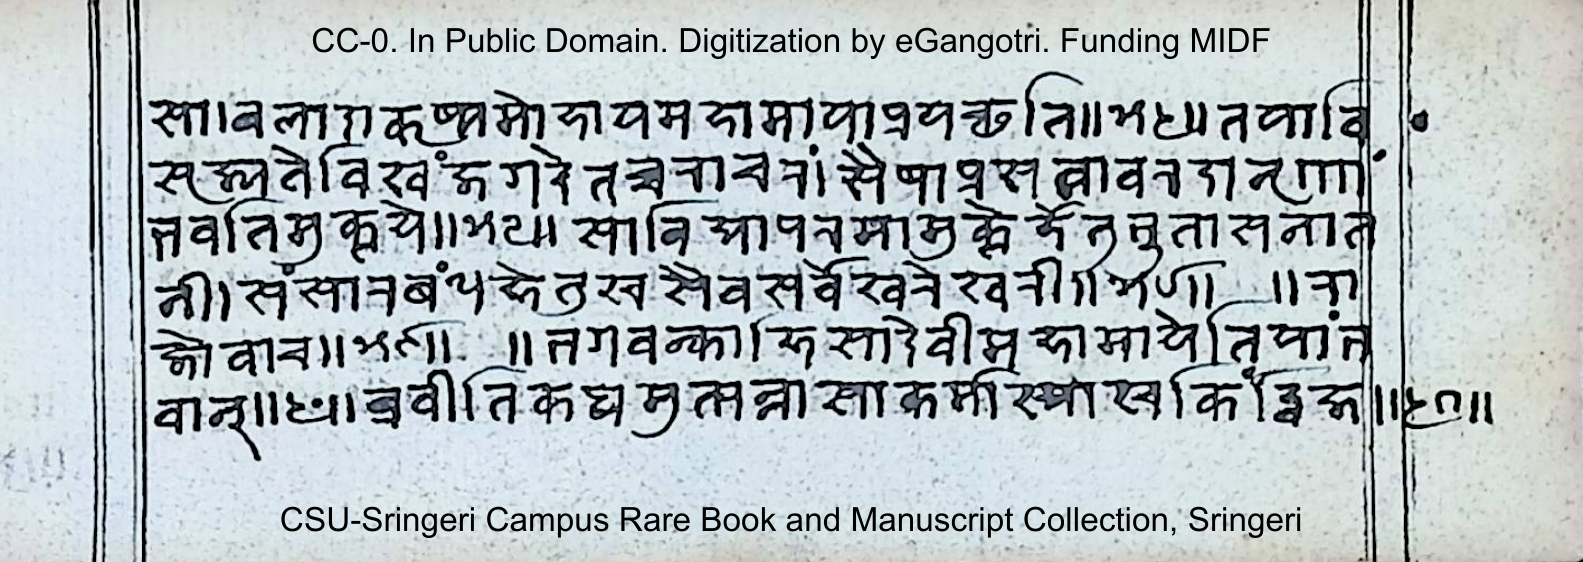 CC-0. In Public Domain. Digitization by eGangotri. Funding MIDF
सा।बलादाकृष्यमोहायमहामायाप्रयच्छति॥५५॥तयावि
सृज्यतेविश्वंजगदेतच्चराचरं।सैषाप्रसन्नावरदानृणां
भवतिमुक्तये॥५६॥साविद्यापरमामुक्तेर्हेतुभूतासनात
नी।संसारबंधहेतुश्चसैवसर्वेश्वरेश्वरी॥५७॥ ॥रा
जोवाच॥५९॥ ॥भगवन्काहिसादेवीमहामायेतियांभ
वान्॥६०॥ब्रवीतिकथमुत्पन्नासाकर्मास्याश्चकिंद्विज॥६१॥
CSU-Sringeri Campus Rare Book and Manuscript Collection, Sringeri